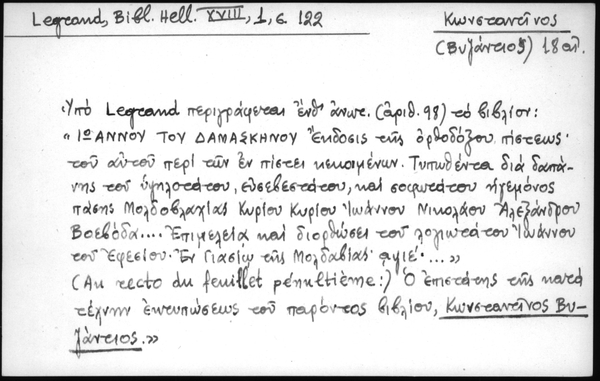 Legrand, Bibl. Hell. XVIII, 1, σ. 122
Κωνσταντῖνος
(Βυζάντιος) 18 αἰ.
Ὑπὸ Legrand περιγράφεται ἔνθ' ἀνωτ. (ἀριθ. 98) τὸ βιβλίον:
« ΙΩΑΝΝΟΥ ΤΟΥ ΔΑΜΑΣΚΗΝΟΥ Ἔκδοσις τῆς ὀρθοδόξου πίστεως·
τοῦ αὐτοῦ περὶ τῶν ἐν πίστει κεκοιμημένων. Τυπωθέντα διὰ δαπά-
νης τοῦ ὑψηλοτάτου, εὐσεβεστάτου, καὶ σοφωτάτου ἡγεμόνος
πάσης Μολδοβλαχίας Κυρίου Κυρίου Ἰωάννου Νικολάου Ἀλεξάνδρου
Βοεβόδα.... Ἐπιμελείᾳ καὶ διορθώσει τοῦ λογιωτάτου Ἰωάννου
τοῦ Ἐφεσίου. Ἐν Γιασίῳ τῆς Μολδαβίας· αψιέ. ... »
(Au recto du feuillet pénultième:) Ὁ ἐπιστάτης τῆς κατὰ
τέχνην ἐκτυπώσεως τοῦ παρόντος βιβλίου, Κωνσταντῖνος Βυ-
ζάντιος.»